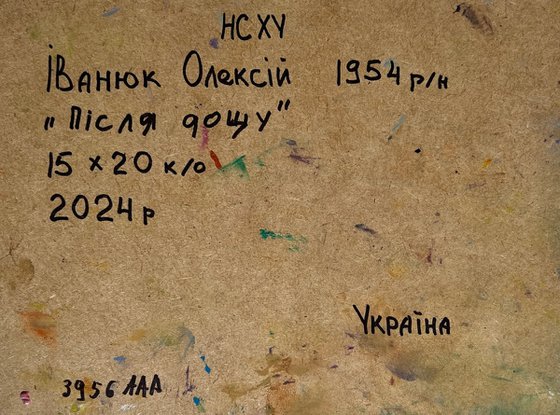 НСХУ
Іванюк Олексій 1954 р/н
„Після дощу"
15 x 20 к/о
2024 р
Україна
3956 ААА